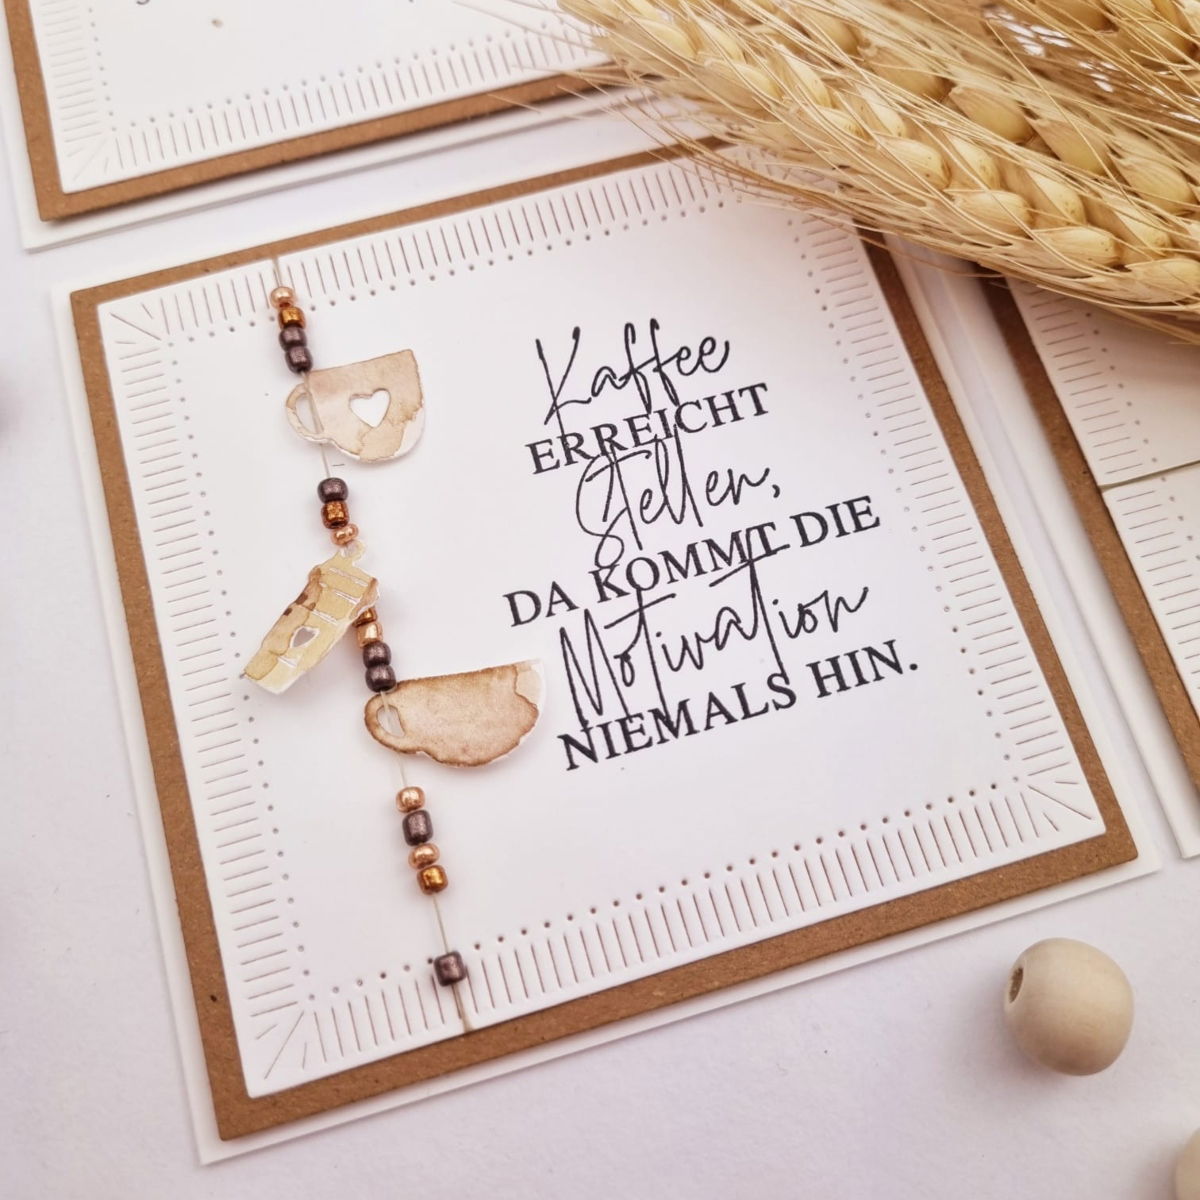 Kaffee
ERREICHT
Stellen,
DA KOMMT DIE
Motivation
NIEMALS HIN.